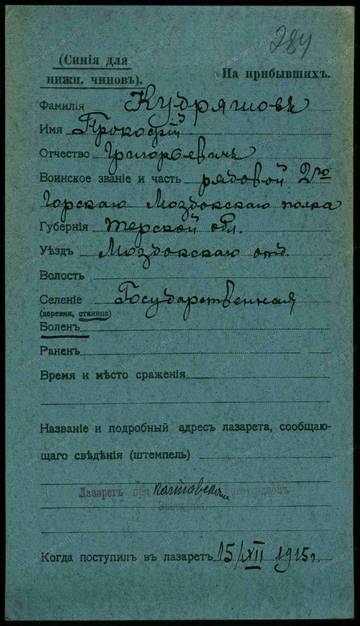 284
(Синія для
нижн. чиновъ).
На прибывшихъ.
Фамилія Кудряшовъ
Имя Прокофій
Отчество Григорьевичъ
Воинское званіе и часть рядовой 2го
Горскаго Моздокскаго полка
Губернія Терской обл.
Уѣздъ Моздокскаго отд.
Волость
Селеніе Государственная
(деревня, станица)
Боленъ
Раненъ
Время и мѣсто сраженія
Названіе и подробный адресъ лазарета, сообщаю-
щаго свѣдѣнія (штемпель)
Лазаретъ при
Когда поступилъ въ лазаретъ 15/XII 1915г.